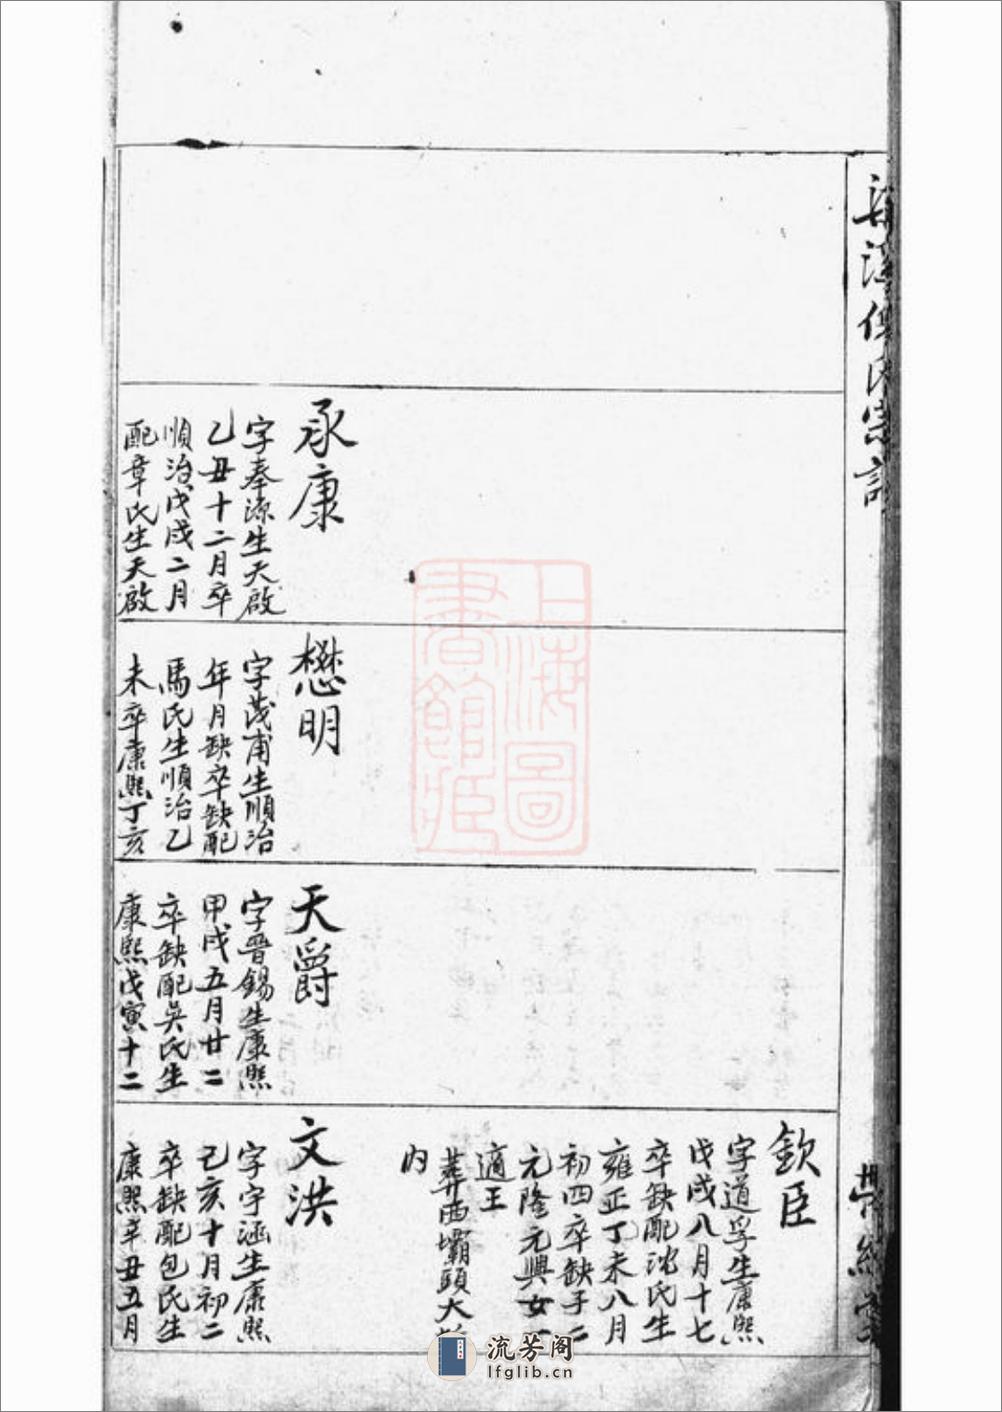 氏宗
承康
字奉源生天啟
乙丑十二月卒
順治戊戌二月
配章氏生天啟
懋明
字茂甫生順治
年月缺卒缺配
馬氏生順治乙
未卒康熙丁亥
天爵
字晋錫生康熙
甲戌五月廿二
卒缺配吳氏生
康熙戊寅十二
欽臣
字道孚生康熙
戊戌八月十七
卒缺配沈氏生
雍正丁未八月
初四卒缺子二
元隆元興女一
適王
葬西壩頭大
内
文洪
字宇涵生康熙
己亥十月初二
卒缺配包氏生
康熙辛丑五月
上海圖書館藏
流芳阁
lfglib.cn